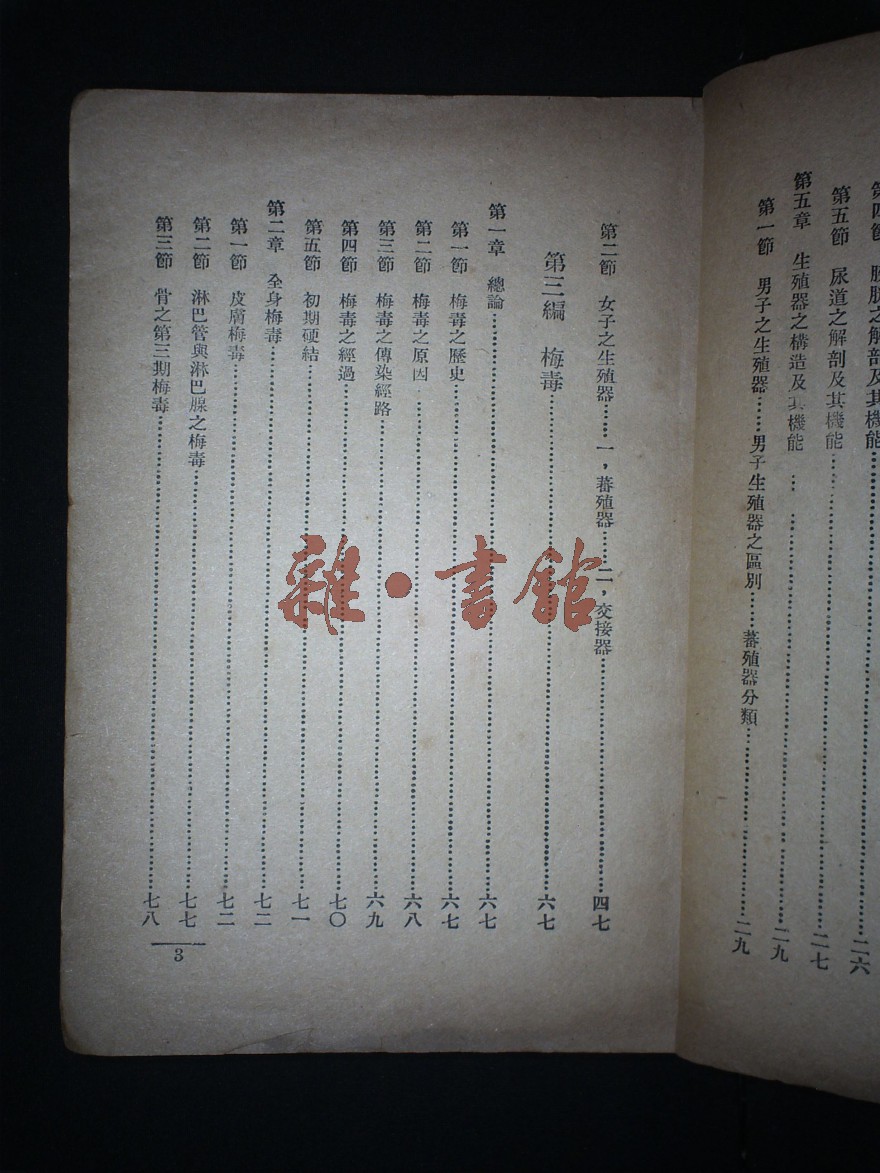 第四節 膀胱之解剖及其機能……二六
第五節 尿道之解剖及其機能……二七
第五章 生殖器之構造及其機能……二九
第一節 男子之生殖器……男子生殖器之區別……蕃殖器分類……二九
第二節 女子之生殖器……一，蕃殖器……二，交接器……四七
第三編 梅毒……六七
第一章 總論……六七
第一節 梅毒之歷史……六七
第二節 梅毒之原因……六八
第三節 梅毒之傳染經路……六九
第四節 梅毒之經過……七〇
第五節 初期硬結……七一
第二章 全身梅毒……七二
第一節 皮膚梅毒……七二
第二節 淋巴管與淋巴腺之梅毒……七七
第三節 骨之第三期梅毒……七八
3
雜·書館